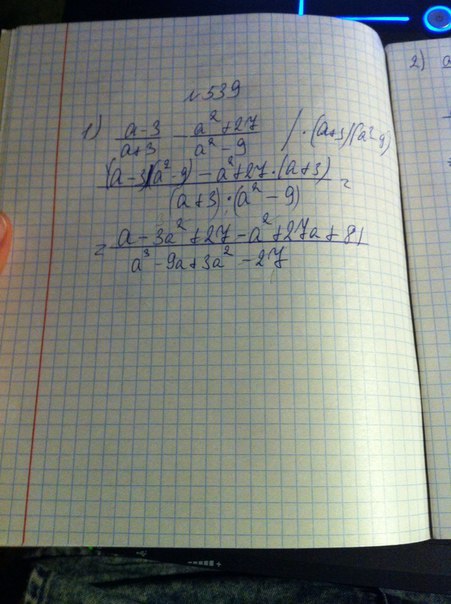 №539
1) (a-3)/(a+3) - (a²+27)/(a²-9) / ·(a+3)(a²-9)
((a-3)(a²-9) - a²+27·(a+3))/((a+3)·(a²-9)) =
= (a-3a²+27-a²+27a+81)/(a³-9a+3a²-27)
2) a